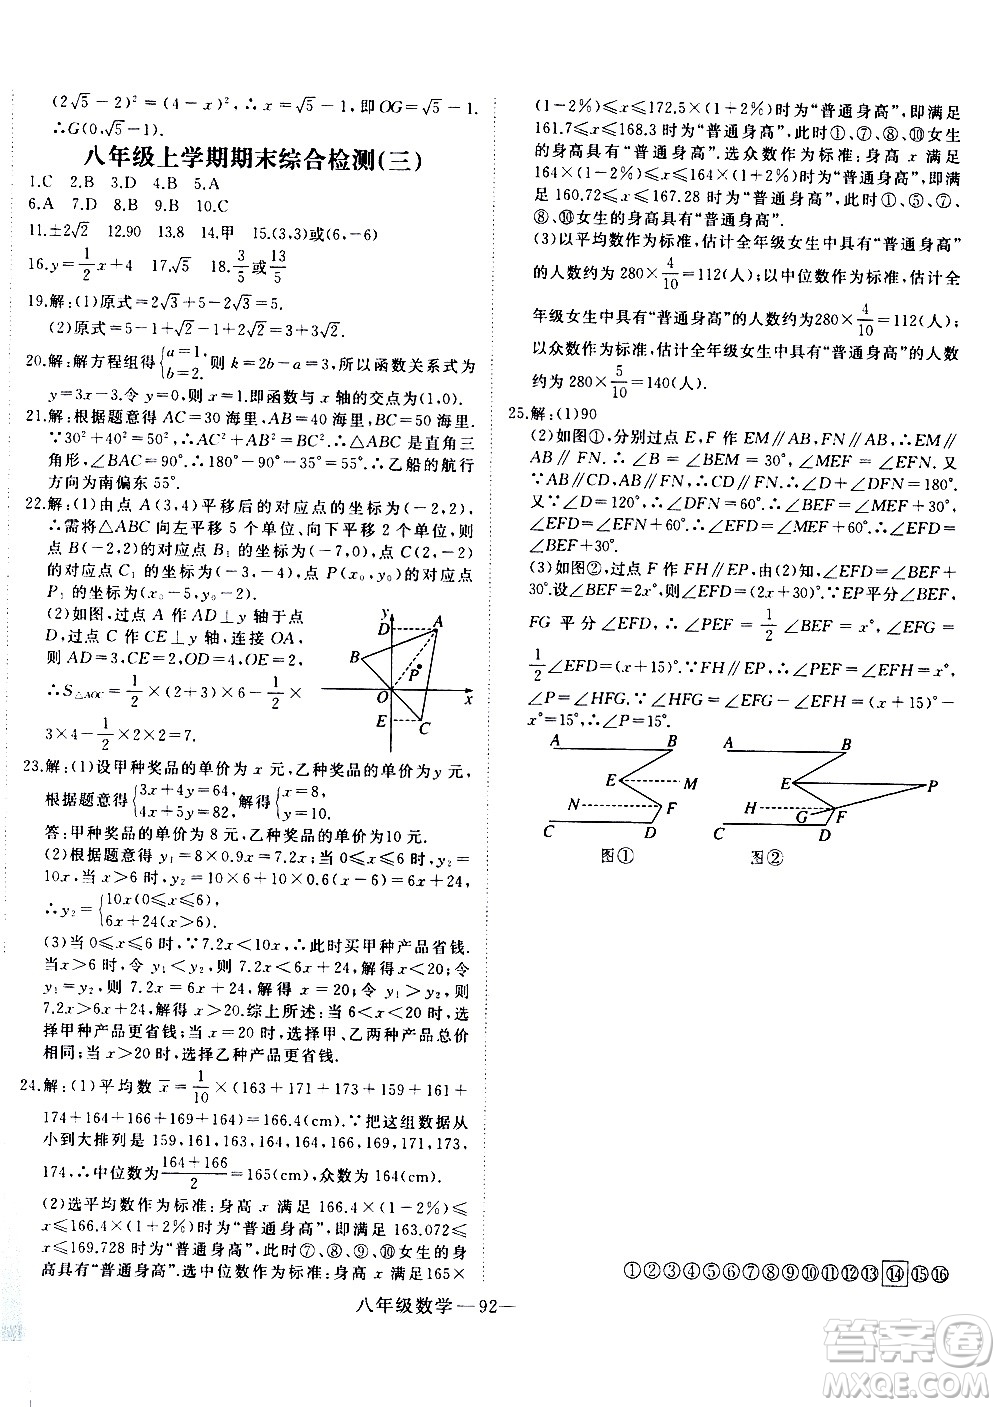 (2√5－2)²＝(4－x)²,∴x＝√5－1,即OG＝√5－1.
∴G(0,√5－1).
八年级上学期期末综合检测(三)
1.C 2.B 3.D 4.B 5.A
6.A 7.D 8.B 9.B 10.C
11.±2 12.90 13.8 14.甲 15.(3,3)或(6,－6)
16.y＝1/2x＋4 17.√5 18.3/5或13/5
19.解:(1)原式＝2√3＋5－2√3＝5.
(2)原式＝5－1＋√2－1－√2＝3.
20.解:解方程组得{a＝1, b＝2. 则k＝2b－a＝3,所以函数关系式为
y＝3x－3.令y＝0,则x＝1.即函数与x轴的交点为(1,0).
21.解:根据题意得AC＝30海里,AB＝40海里,BC＝50海里.
∵30²＋40²＝50²,∴AC²＋AB²＝BC²,∴△ABC是直角三
角形,∠BAC＝90°.∴180°－90°－35°＝55°.∴乙船的航行
方向为南偏东55°.
22.解:(1)由点A(3,4)平移后的对应点的坐标为(－2,2),
∴需将△ABC向左平移5个单位、向下平移2个单位,则
点B(－2,2)的对应点B₁的坐标为(－7,0),点C(2,－2)
的对应点C₁的坐标为(－3,－4),点P(x₀,y₀)的对应点
P₁的坐标为(x₀－5,y₀－2).
(2)如图,过点A作AD⊥y轴于点
D,过点C作CE⊥y轴,连接OA,
则AD＝3,CE＝2,OD＝4,OE＝2.
∴S△AOC＝1/2×(3＋2)×6－1/2×
3×4－1/2×2×2＝7.
y
D
A
B
P
O
x
E
C
23.解:(1)设甲种奖品的单价为x元,乙种奖品的单价为y元,
根据题意得{3x＋4y＝64, 4x＋5y＝82, 解得{x＝8, y＝10.
答:甲种奖品的单价为8元,乙种奖品的单价为10元.
(2)根据题意得y₁＝8×0.9x＝7.2x;当0≤x≤6时,y₂＝
10x;当x>6时,y₂＝10×6＋10×0.6(x－6)＝6x＋24,
∴y₂＝{10x(0≤x≤6) 6x＋24(x>6).
(3)当0≤x≤6时,∵7.2x<10x,∴此时买甲种产品省钱.
当x>6时,令y₁<y₂,则7.2x<6x＋24,解得x<20;令
y₁＝y₂,则7.2x＝6x＋24,解得x＝20;令y₁>y₂,则
7.2x>6x＋24,解得x>20.综上所述:当x<20时,选
择甲种产品更省钱;当x＝20时,选择甲、乙两种产品总价
相同;当x>20时,选择乙种产品更省钱.
24.解:(1)平均数x̄＝1/10×(163＋171＋173＋159＋161＋
174＋164＋166＋169＋164)＝166.4(cm).∵把这组数据从
小到大排列是159,161,163,164,164,166,169,171,173,
174,∴中位数为(164＋166)/2＝165(cm),众数为164(cm).
(2)选平均数作为标准:身高x满足166.4×(1－2%)≤
x≤166.4×(1＋2%)时为“普通身高”,即满足163.072≤
x≤169.728时为“普通身高”.此时⑦⑧⑨⑩女生的身
高具有“普通身高”.选中位数作为标准:身高x满足165×
(1－2%)≤x≤172.5×(1＋2%)时为“普通身高”,即满足
161.7≤x≤168.3时为“普通身高”.此时①⑦⑧⑩女生
的身高具有“普通身高”.选众数作为标准:身高x满足
164×(1－2%)≤x≤164×(1＋2%)时为“普通身高”,即满足
160.72≤x≤167.28时为“普通身高”.此时①、⑤、⑦、
⑧、⑩女生的身高具有“普通身高”.
(3)以平均数作为标准,估计全年级女生中具有“普通身高”
的人数约为280×4/10＝112(人);以中位数作为标准,估计全
年级女生中具有“普通身高”的人数约为280×4/10＝112(人);
以众数作为标准,估计全年级女生中具有“普通身高”的人数
约为280×5/10＝140(人).
25.解:(1)90
(2)如图①,分别过点E,F作EM∥AB,FN∥AB,∴EM∥
AB∥FN.∴∠B＝∠BEM＝30°,∠MEF＝∠EFN.又
∵AB∥CD,AB∥FN,∴CD∥FN.∴∠D＋∠DFN＝180°.
又∵∠D＝120°,∴∠DFN＝60°.∴∠BEF＝∠MEF＋30°,
∠EFD＝∠EFN＋60°.∴∠EFD＝∠MEF＋60°.∴∠EFD＝
∠BEF＋30°.
(3)如图②,过点F作FH∥EP,由(2)知,∠EFD＝∠BEF＋
30°.设∠BEF＝2x°,则∠EFD＝(2x＋30)°.∵EP平分∠BEF,
FG平分∠EFD,∴∠PEF＝1/2∠BEF＝x°,∠EFG＝
1/2∠EFD＝(x＋15)°.∵FH∥EP,∴∠PEF＝∠EFH＝x°,
∠P＝∠HFG.∵∠HFG＝∠EFG－∠EFH＝(x＋15)°－
x°＝15°,∴∠P＝15°.
A B
E M
N F
C D
图①
A B
E P
H G F
C D
图②
①②③④⑤⑥⑦⑧⑨⑩⑪⑫⑬⑭⑮⑯
八年级数学—92—
答案圈
MXQE.COM